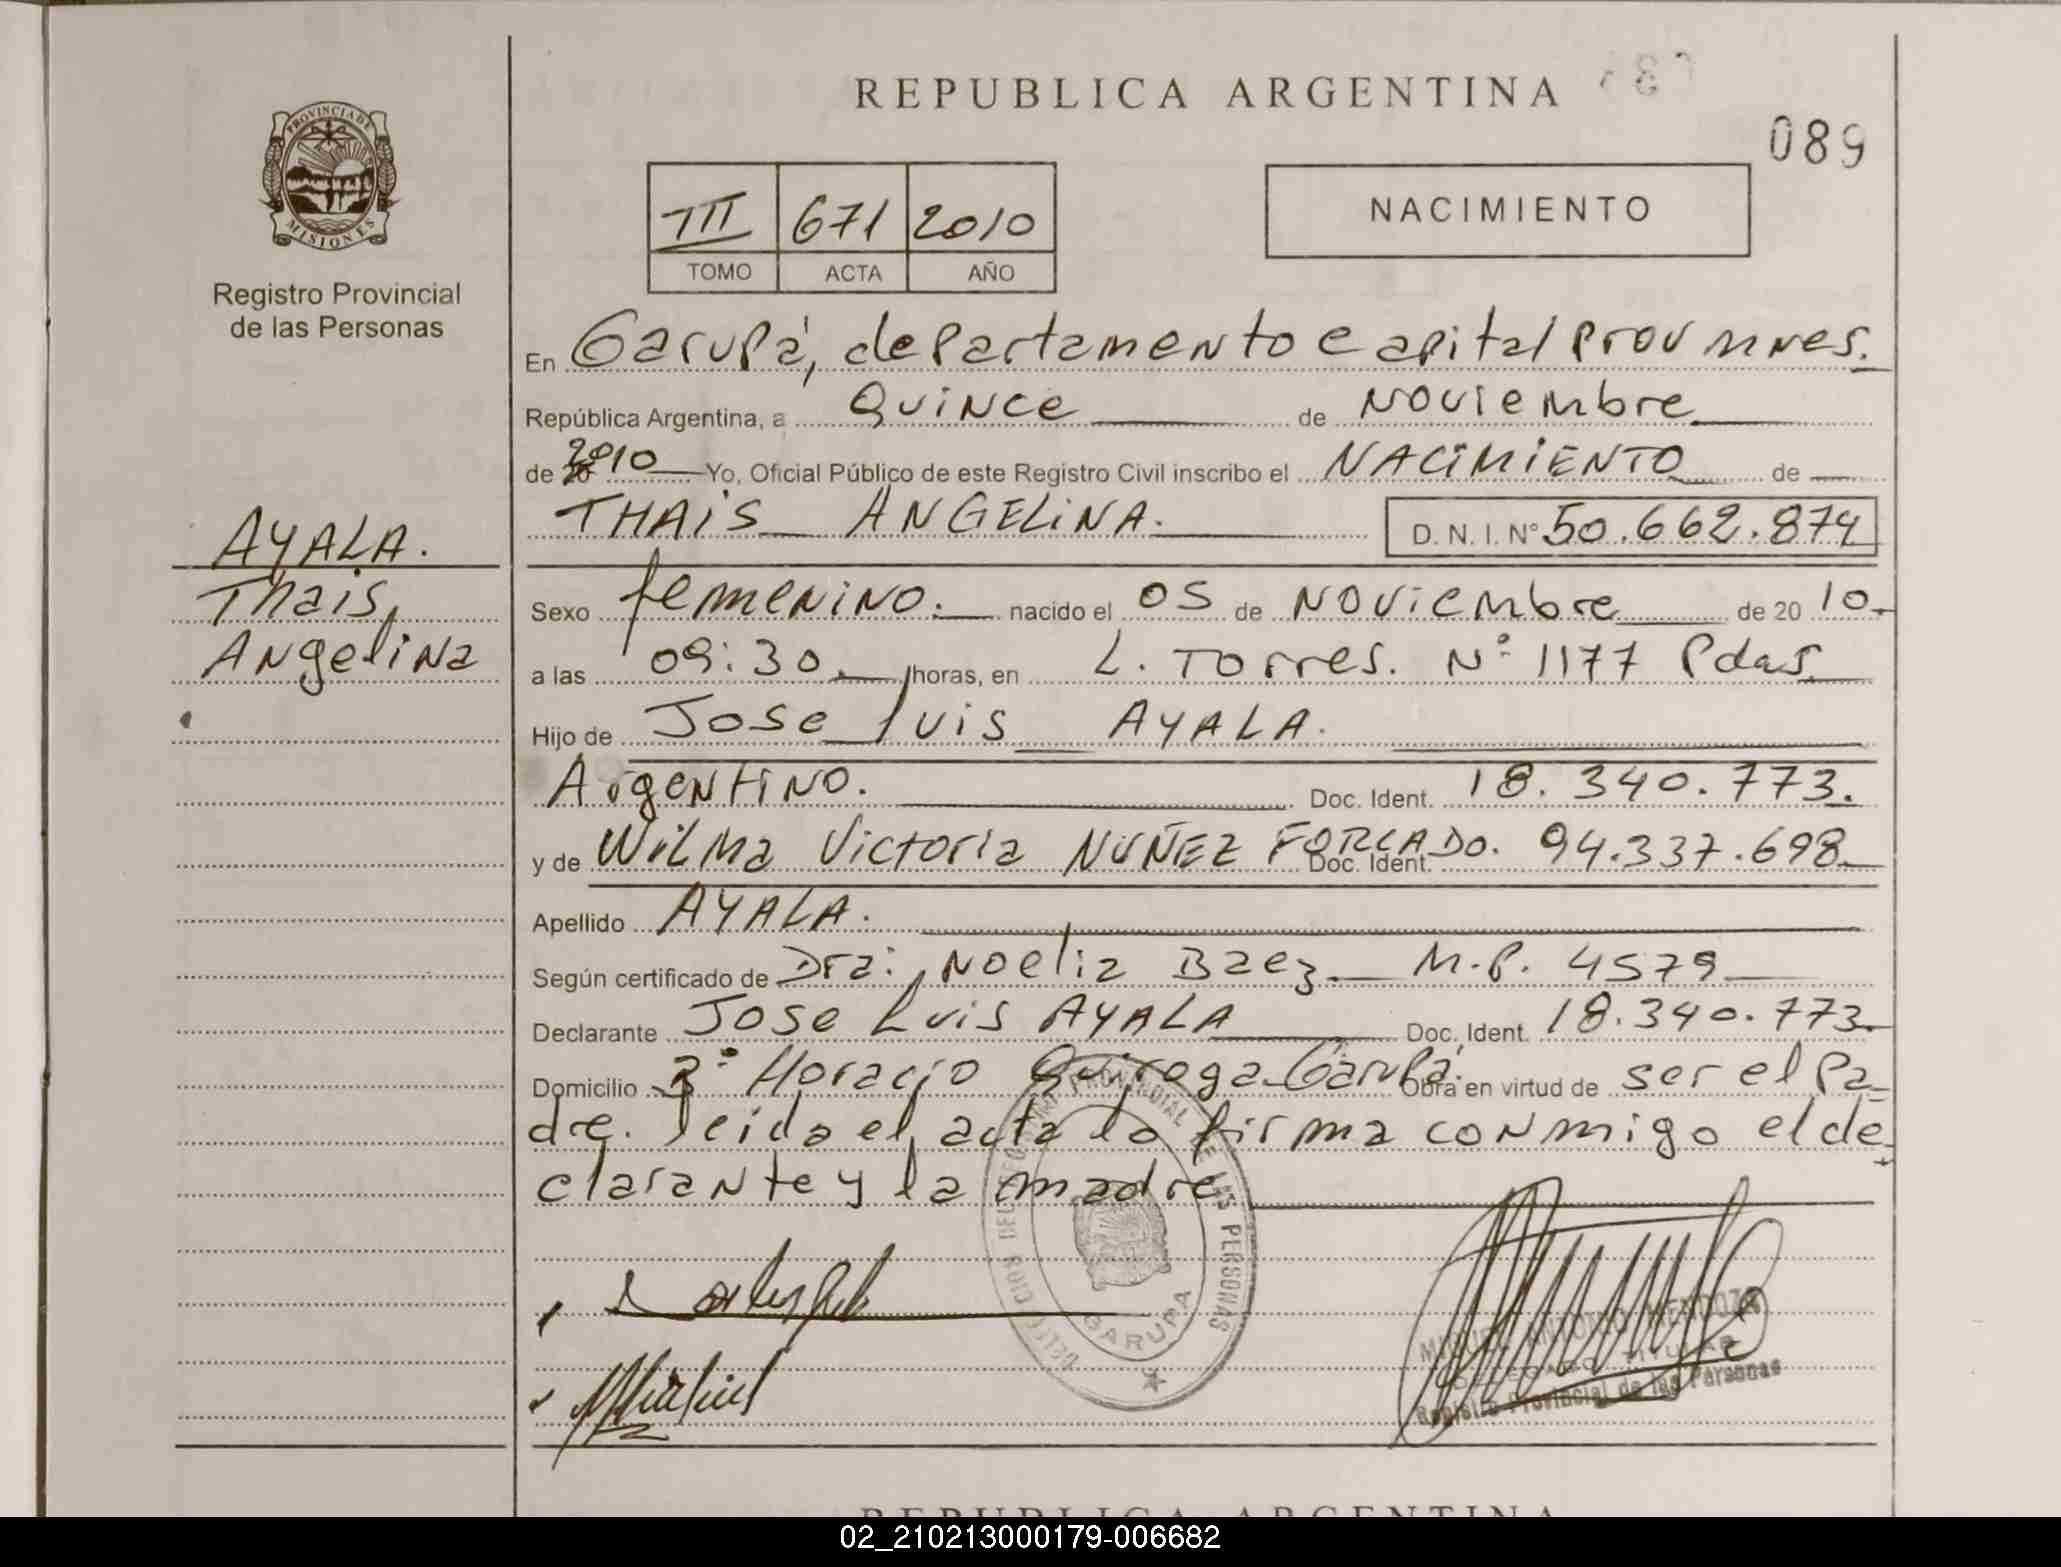 REPUBLICA ARGENTINA
089
PROVINCIA DE
MISIONES
Registro Provincial
de las Personas
III 671 2010
TOMO ACTA AÑO
NACIMIENTO
En Garupá, departamento capital Prov mnes.
República Argentina, a Quince de Noviembre
de 2010 Yo, Oficial Público de este Registro Civil inscribo el NACIMIENTO de
THAIS ANGELINA. D. N. I. N° 50.662.874
AYALA.
Thais,
Angelina
Sexo femenino. nacido el 05 de Noviembre de 20 10.
a las 09:30 horas, en L. Torres. N° 1177 Pdas.
Hijo de Jose luis AYALA.
Argentino. Doc. Ident. 18.340.773.
y de Wilma Victoria NUÑEZ FORCADO. Doc. Ident. 94.337.698
Apellido AYALA.
Según certificado de Dra: Noelia Baez. M.P. 4579
Declarante Jose Luis AYALA Doc. Ident. 18.340.773.
Domicilio B° Horacio Quiroga Garupá. Obra en virtud de ser el Pa-
dre. leida el acta la firma conmigo el de-
clarante y la madre
PROVINCIAL DE LAS PERSONAS
GARUPA
MIGUEL ANTONIO MENDOZA
DELEGADO TITULAR
Registro Provincial de las Personas
REPUBLICA ARGENTINA
02_210213000179-006682